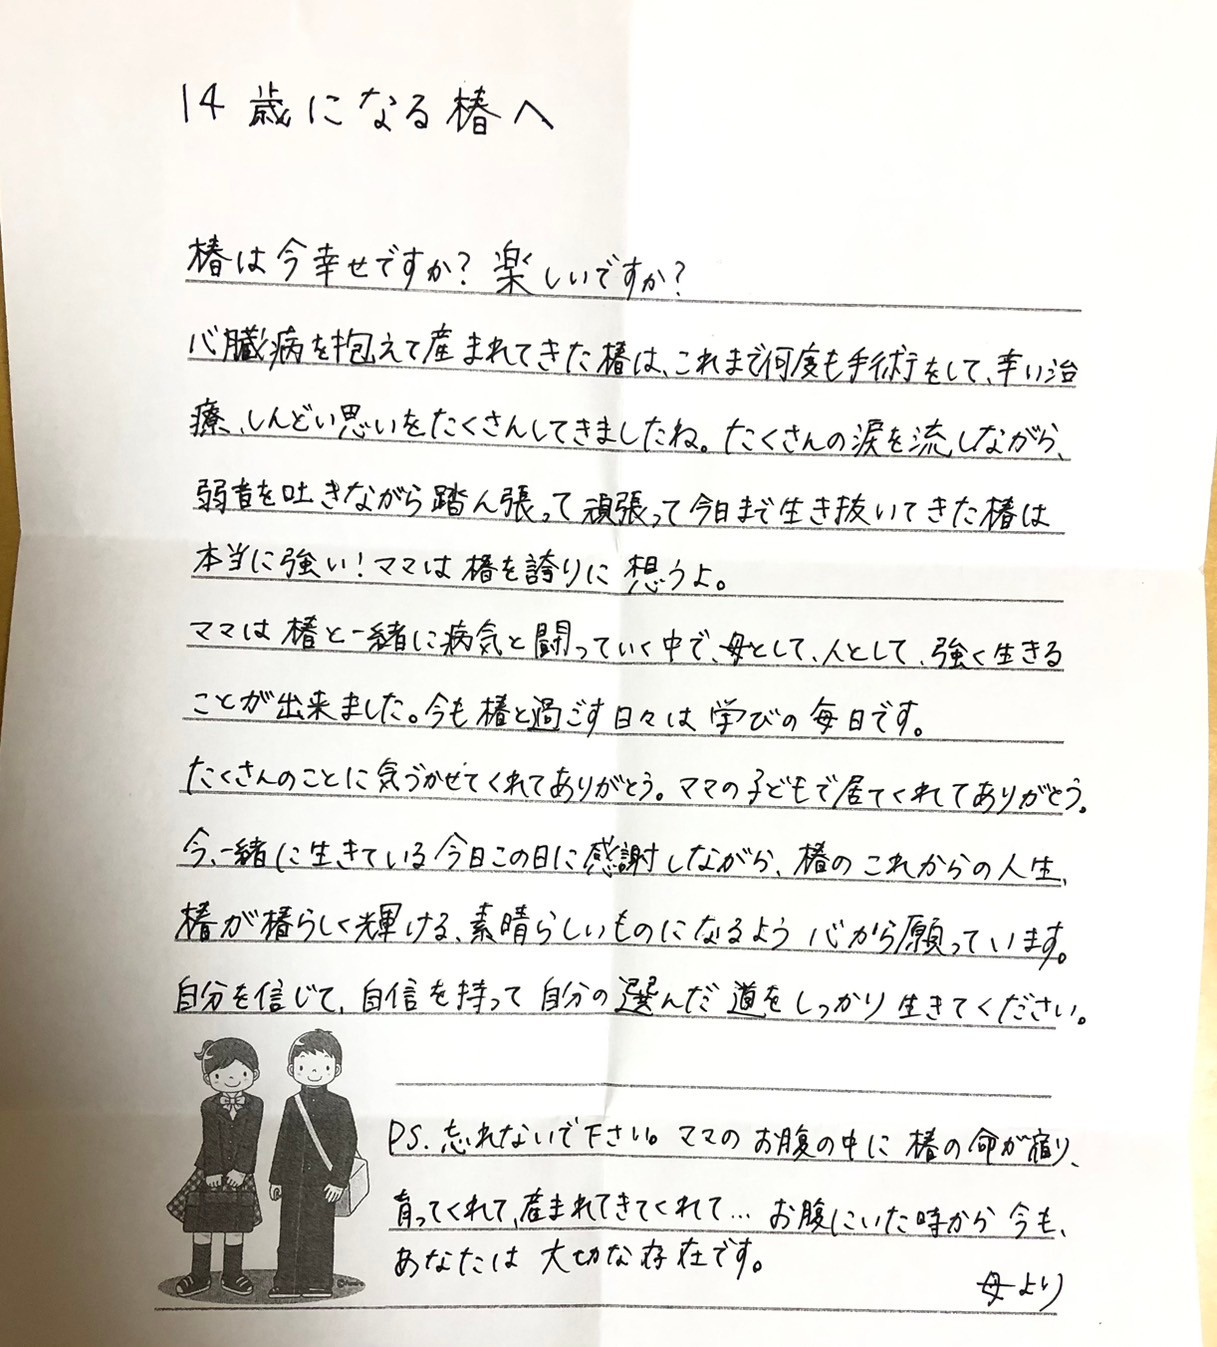 14歳になる椿へ
椿は今幸せですか？楽しいですか？
心臓病を抱えて産まれてきた椿は、これまで何度も手術をして、辛い治
療、しんどい思いをたくさんしてきましたね。たくさんの涙を流しながら、
弱音を吐きながら踏ん張って頑張って今日まで生き抜いてきた椿は
本当に強い！ママは椿を誇りに想うよ。
ママは椿と一緒に病気と闘っていく中で、母として、人として、強く生きる
ことが出来ました。今も椿と過ごす日々は学びの毎日です。
たくさんのことに気づかせてくれてありがとう。ママの子どもで居てくれてありがとう。
今、一緒に生きている今日この日に感謝しながら、椿のこれからの人生、
椿が椿らしく輝ける、素晴らしいものになるよう心から願っています。
自分を信じて、自信を持って自分の選んだ道をしっかり生きてください。
PS.忘れないで下さい。ママのお腹の中に椿の命が宿り、
育ってくれて、産まれてきてくれて…お腹にいた時から今も、
あなたは大切な存在です。
母より